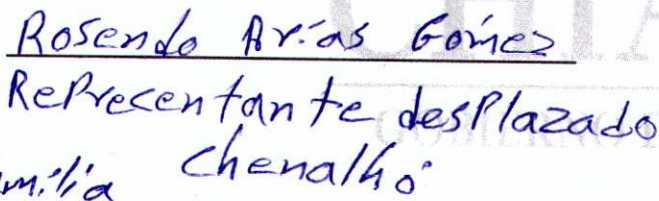 Rosendo Arias Gómez
Reprecentante desplazado
milia Chenalhó